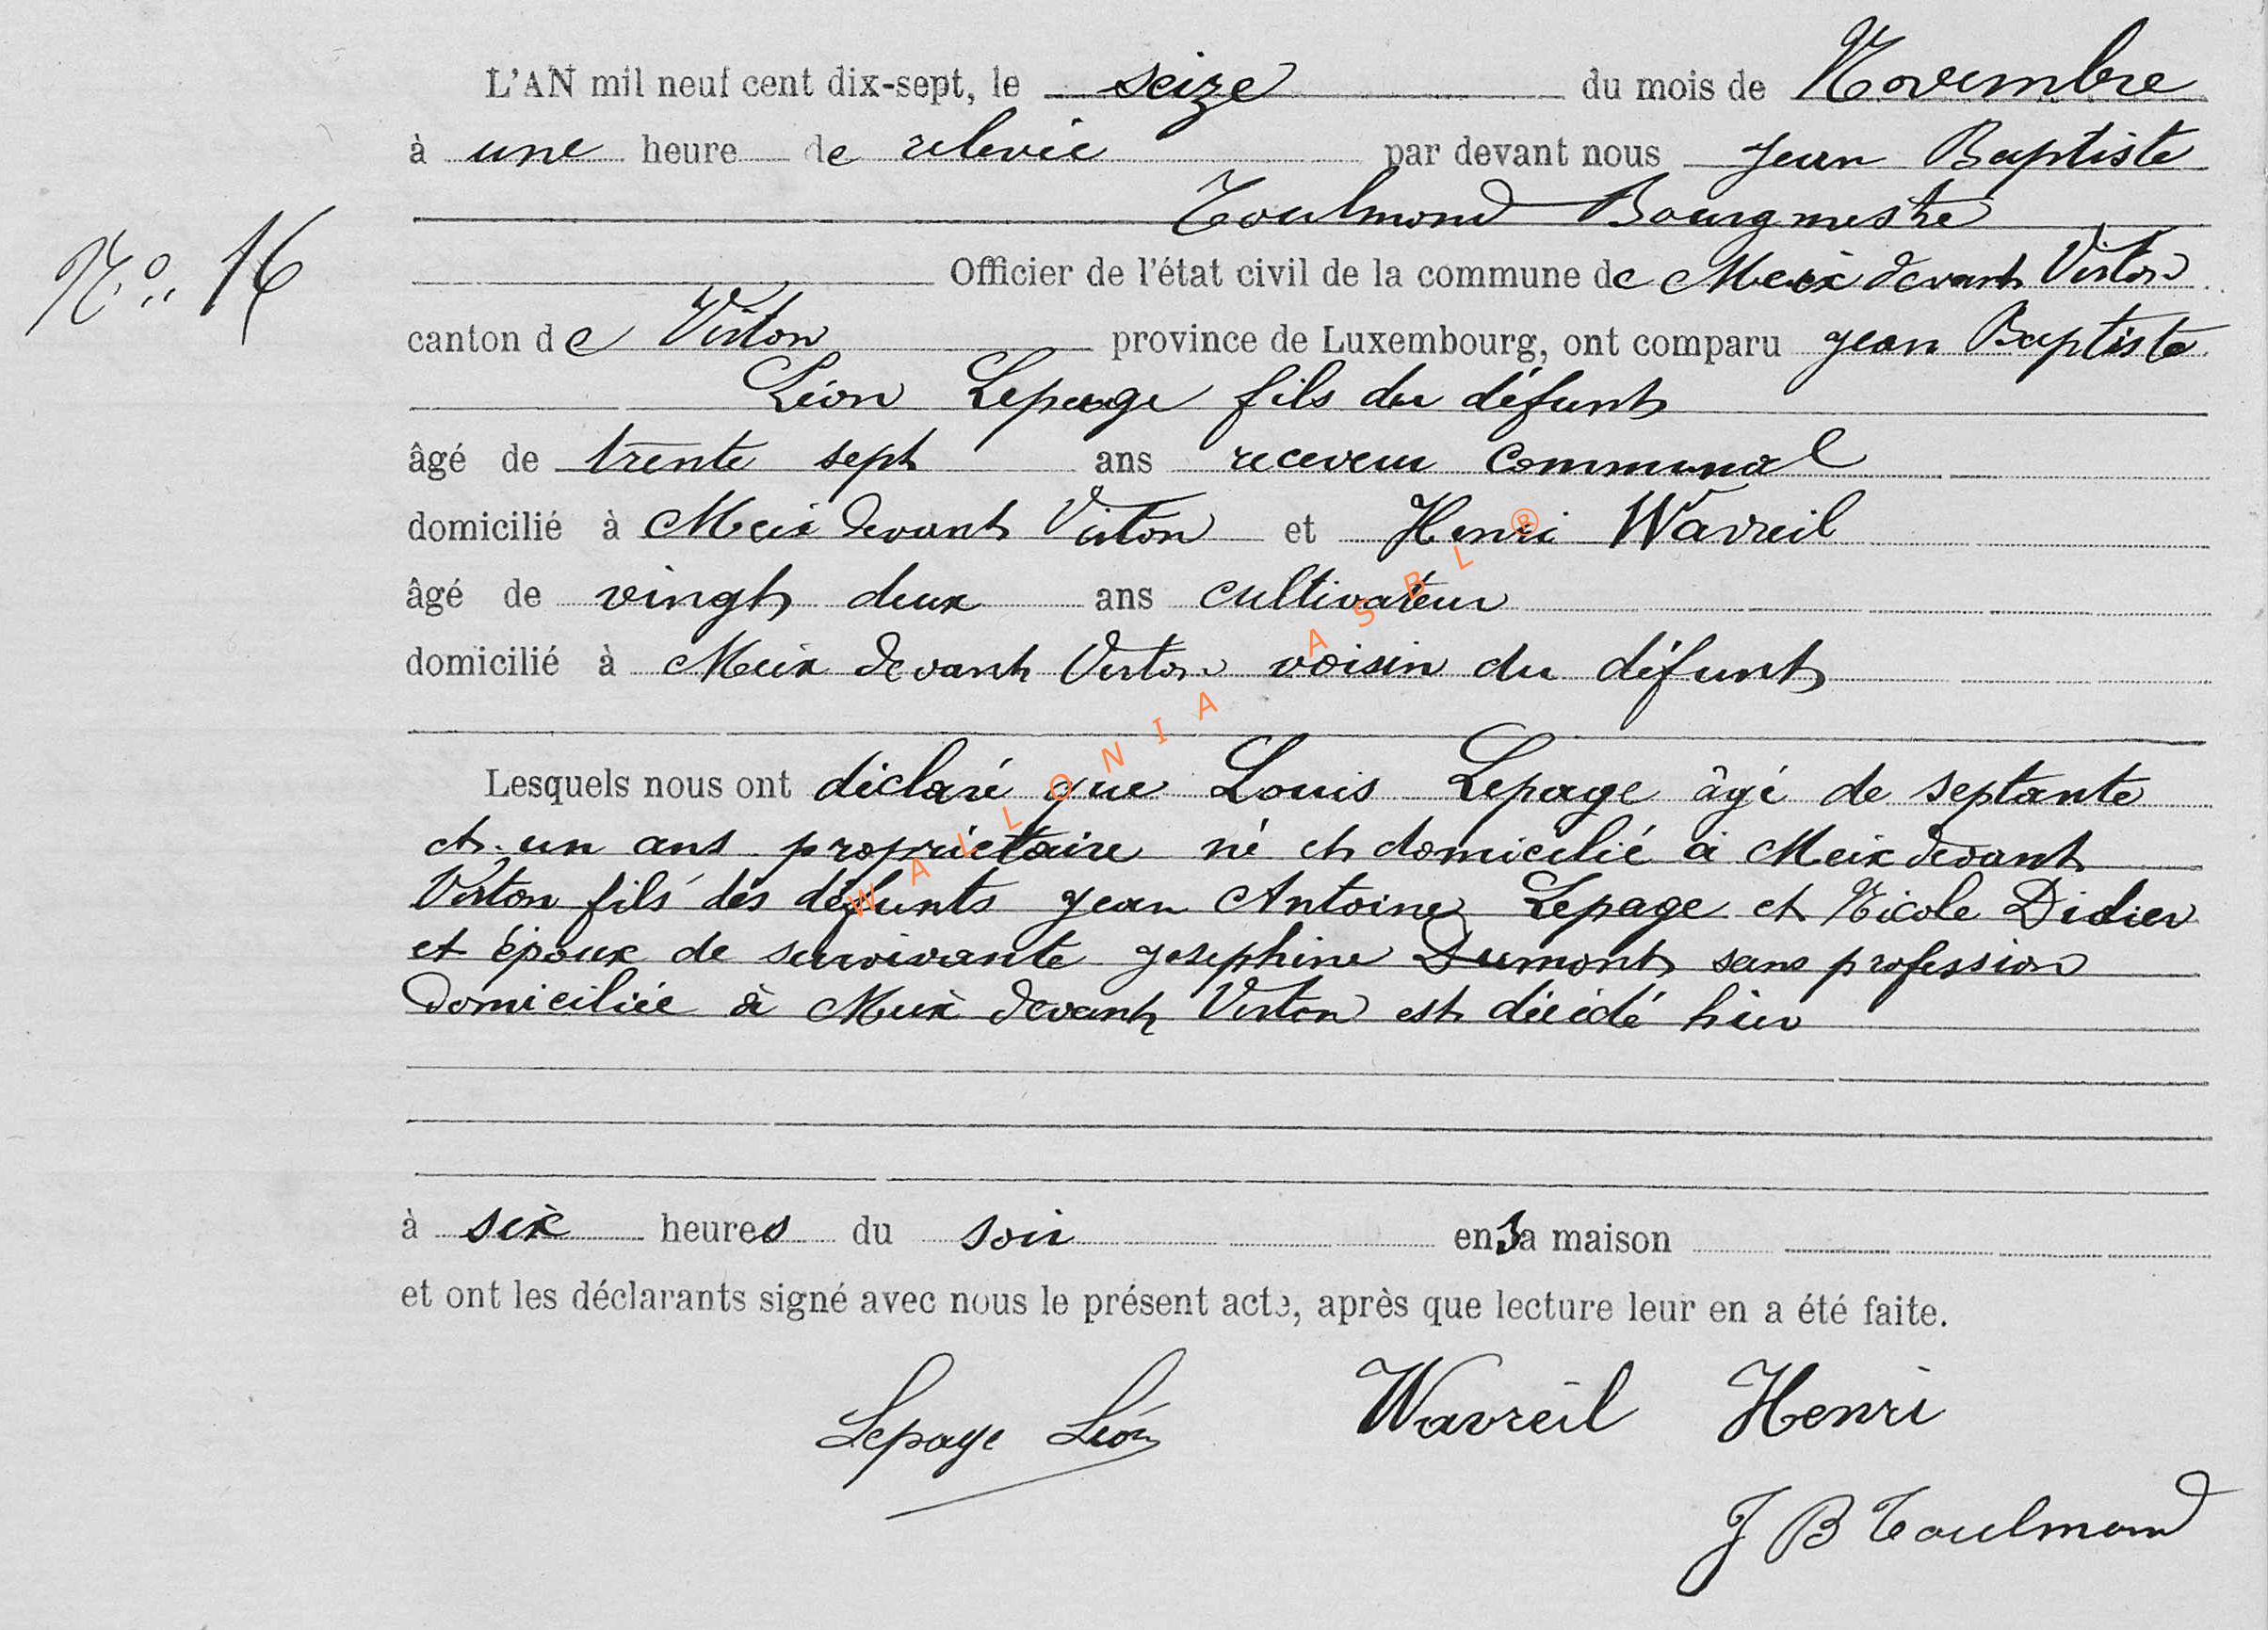 L'AN mil neuf cent dix-sept, le seize du mois de Novembre
à une heure de relevée par devant nous Jean Baptiste
Toulmond Bourgmestre
N° 16
Officier de l'état civil de la commune de Meix devant Virton
canton de Virton province de Luxembourg, ont comparu Jean Baptiste
Léon Lepage fils du défunt
âgé de trente sept ans receveur communal
domicilié à Meix devant Virton et Henri Wavreil
âgé de vingt deux ans cultivateur
domicilié à Meix devant Virton voisin du défunt
Lesquels nous ont déclaré que Louis Lepage âgé de septante
et un ans propriétaire né et domicilié à Meix devant
Virton fils des défunts Jean Antoine Lepage et Nicole Didier
et époux de survivante Josephine Dumont sans profession
domiciliée à Meix devant Virton est décédé hier
à six heures du soir en sa maison
et ont les déclarants signé avec nous le présent acte, après que lecture leur en a été faite.
Lepage Léon Wavreil Henri
J B Toulmond
WALLONIA ASBL ®